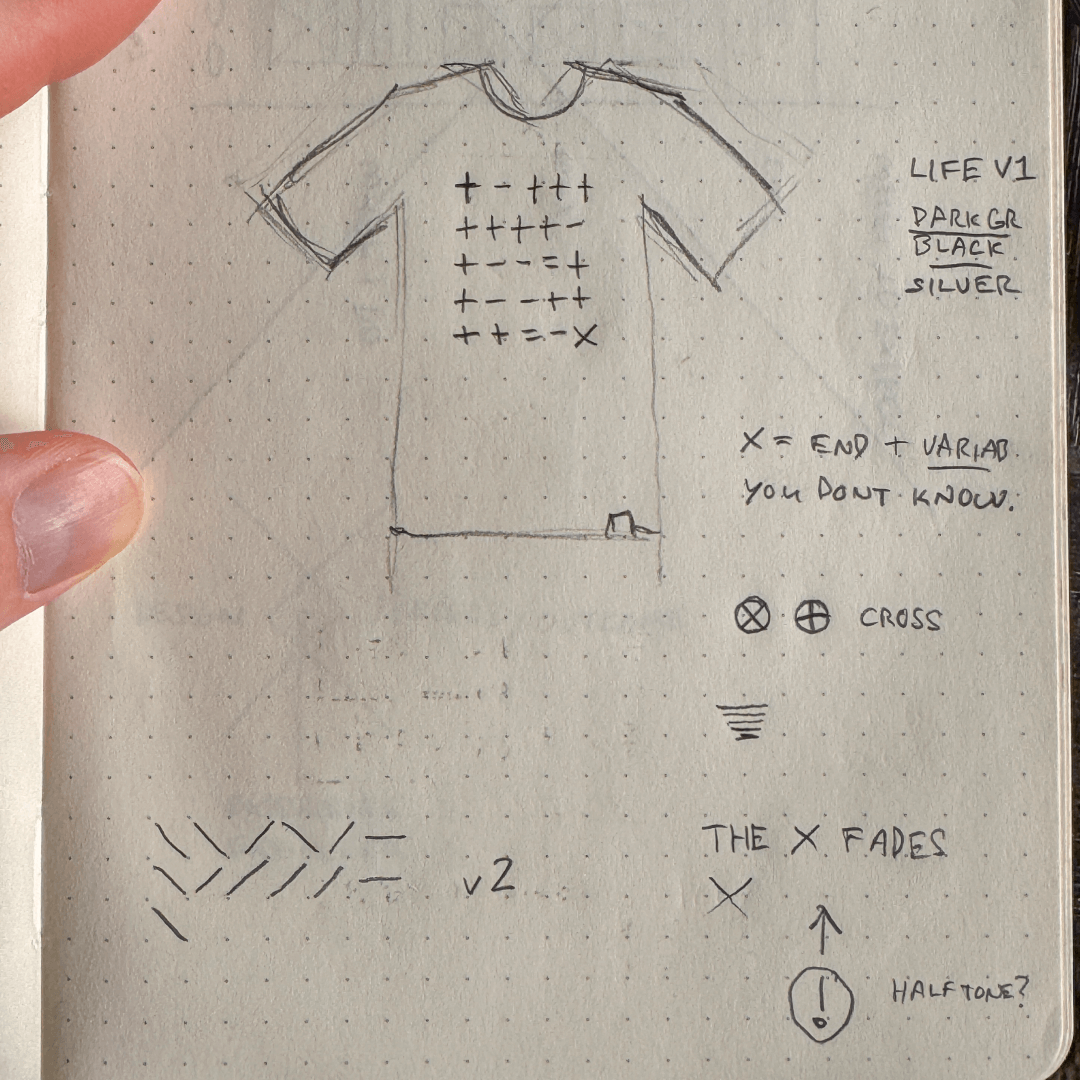 + - + + +
+ + + + -
+ - - = +
+ - - + +
+ + = - X
LIFE V1
DARK GR
BLACK
SILVER
X = END + VARIAB.
YOU DONT KNOW.
CROSS
v2
THE X FADES
X
!
HALFTONE?